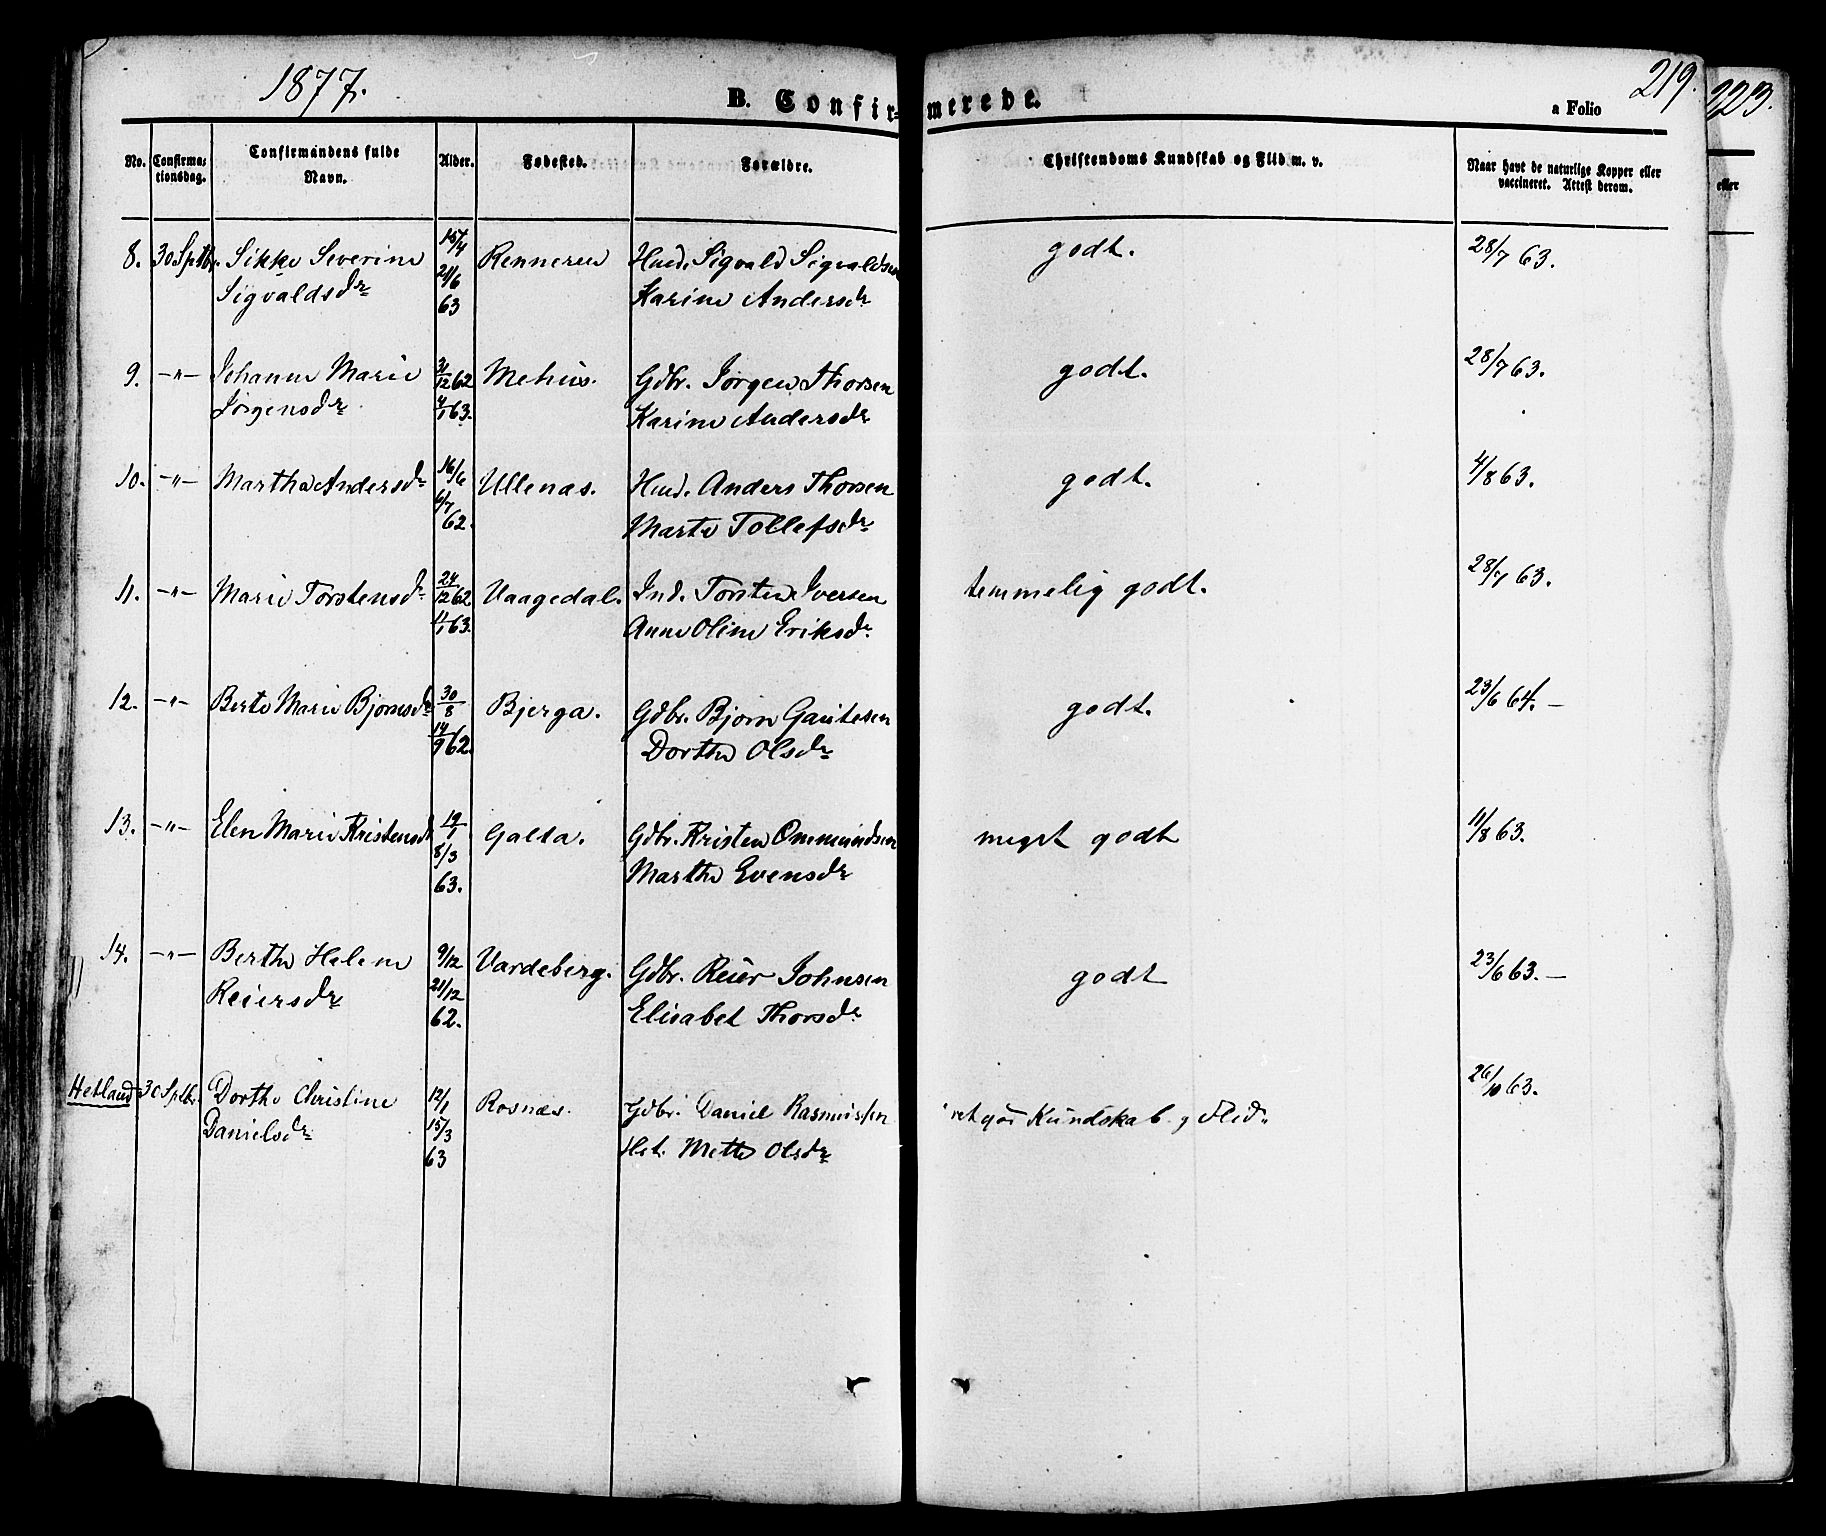 1877.
B. Confir=
merede.
a Folio
219.
223.
No.
Confirma=
tionsdag.
Confirmandens fulde
Navn.
Alder.
Fødested.
Forældre.
Christendoms Kundskab og Flid m. v.
Naar havt de naturlige Kopper eller
vaccineret. Attest derom.
eller
8. 30 Sptbr. Sikke Severine 15/4 Renneren Huusm. Sigvald Sigvaldsen godt. 28/7 63.
Sigvaldsdr 21/6 Karine Andersdr
63
9. -"- Johanne Marie 31/12 62 Mehus. Gdbr. Jørgen Thorsen godt. 28/7 63.
Jørgensdr 4/1 63. Karine Andersdr
10. -"- Martha Andersdr 16/6 Ullenæs. Anders Thorsen godt. 4/8 63.
6/7 62. Marte Tollefsdr
11. -"- Marie Torstensdr 24/12 62 Vaagedal. Ind. Torsten Iversen temmelig godt. 28/7 63.
4/1 63. Anne Oline Eriksdr
12. -"- Berte Marie Bjørnsdr 30/8 Bjerga. Gdbr. Bjørn Gautesen godt. 23/6 64.—
14/9 62. Dorthe Olsdr
13. -"- Elen Marie Kristensdt 19/1 Galta. Gdbr. Kristen Ommundsen meget godt 11/8 63.
8/3 Marthe Evensdr
63.
14. -"- Berthe Helene 9/12 Vardeberg. Gdbr. Reier Johnsen godt 23/6 63.—
Reiersdr 21/12 Elisabet Thorsdr
62.
Hetland 30 Sptbr. Dorthe Christine 12/1 Rosnæs. Gdbr. Daniel Rasmussen ret god Kundskab og Flid. 26/10 63.
Danielsdr 15/3 Mette Olsdr
63